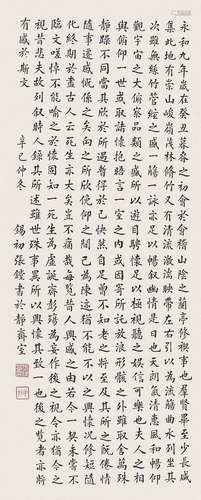 永和九年歲在癸丑暮春之初會於會稽山陰之蘭亭修禊事也群賢畢至少長咸
集此地有崇山峻嶺茂林修竹又有清流激湍映帶左右引以為流觴曲水列坐其
次雖無絲竹管絃之盛一觴一詠亦足以暢敘幽情是日也天朗氣清惠風和暢仰
觀宇宙之大俯察品類之盛所以遊目騁懷足以極視聽之娛信可樂也夫人之相
與俯仰一世或取諸懷抱晤言一室之內或因寄所託放浪形骸之外雖取舍萬殊
靜躁不同當其欣於所遇暫得於己快然自足不知老之將至及其所之既倦情
隨事遷感慨係之矣向之所欣俛仰之間已為陳迹猶不能不以之興懷況修短隨
化終期於盡古人云死生亦大矣豈不痛哉每覽昔人興感之由若合一契未嘗不
臨文嗟悼不能喻之於懷固知一死生為虛誕齊彭殤為妄作後之視今亦猶今之
視昔悲夫故列敘時人錄其所述雖世殊事異所以興懷其致一也後之覽者亦將
有感於斯文
辛巳仲冬
錫初張鏜書於靜齋室